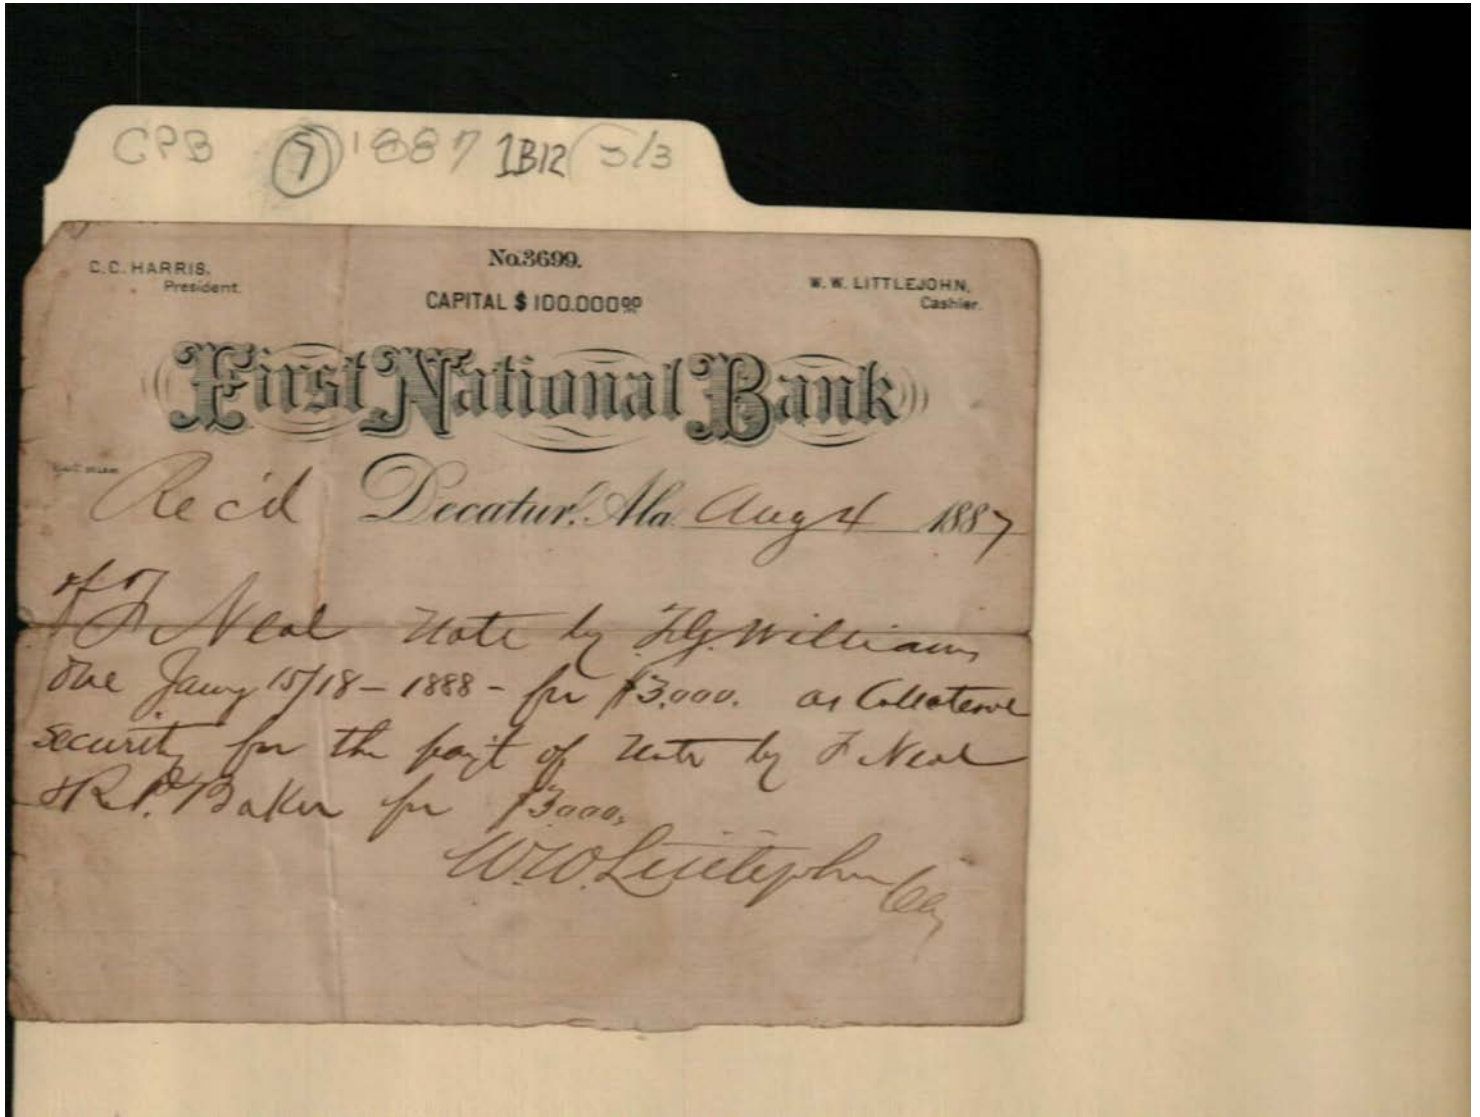 CPB 7 1887 1B12 5/3
No. 3699.
C.C. HARRIS,
President.
CAPITAL $ 100.000 00
W. W. LITTLEJOHN,
Cashier.
First National Bank
Rec'd Decatur, Ala. Aug 4 1887
of F Neal Note by F.G. Williams
due Jany 15/18 - 1888 - for $3,000. as Collateral
security for the payt of Note by F Neal
& R.P. Baker for $3000.
W.W. Littlejohn Cas